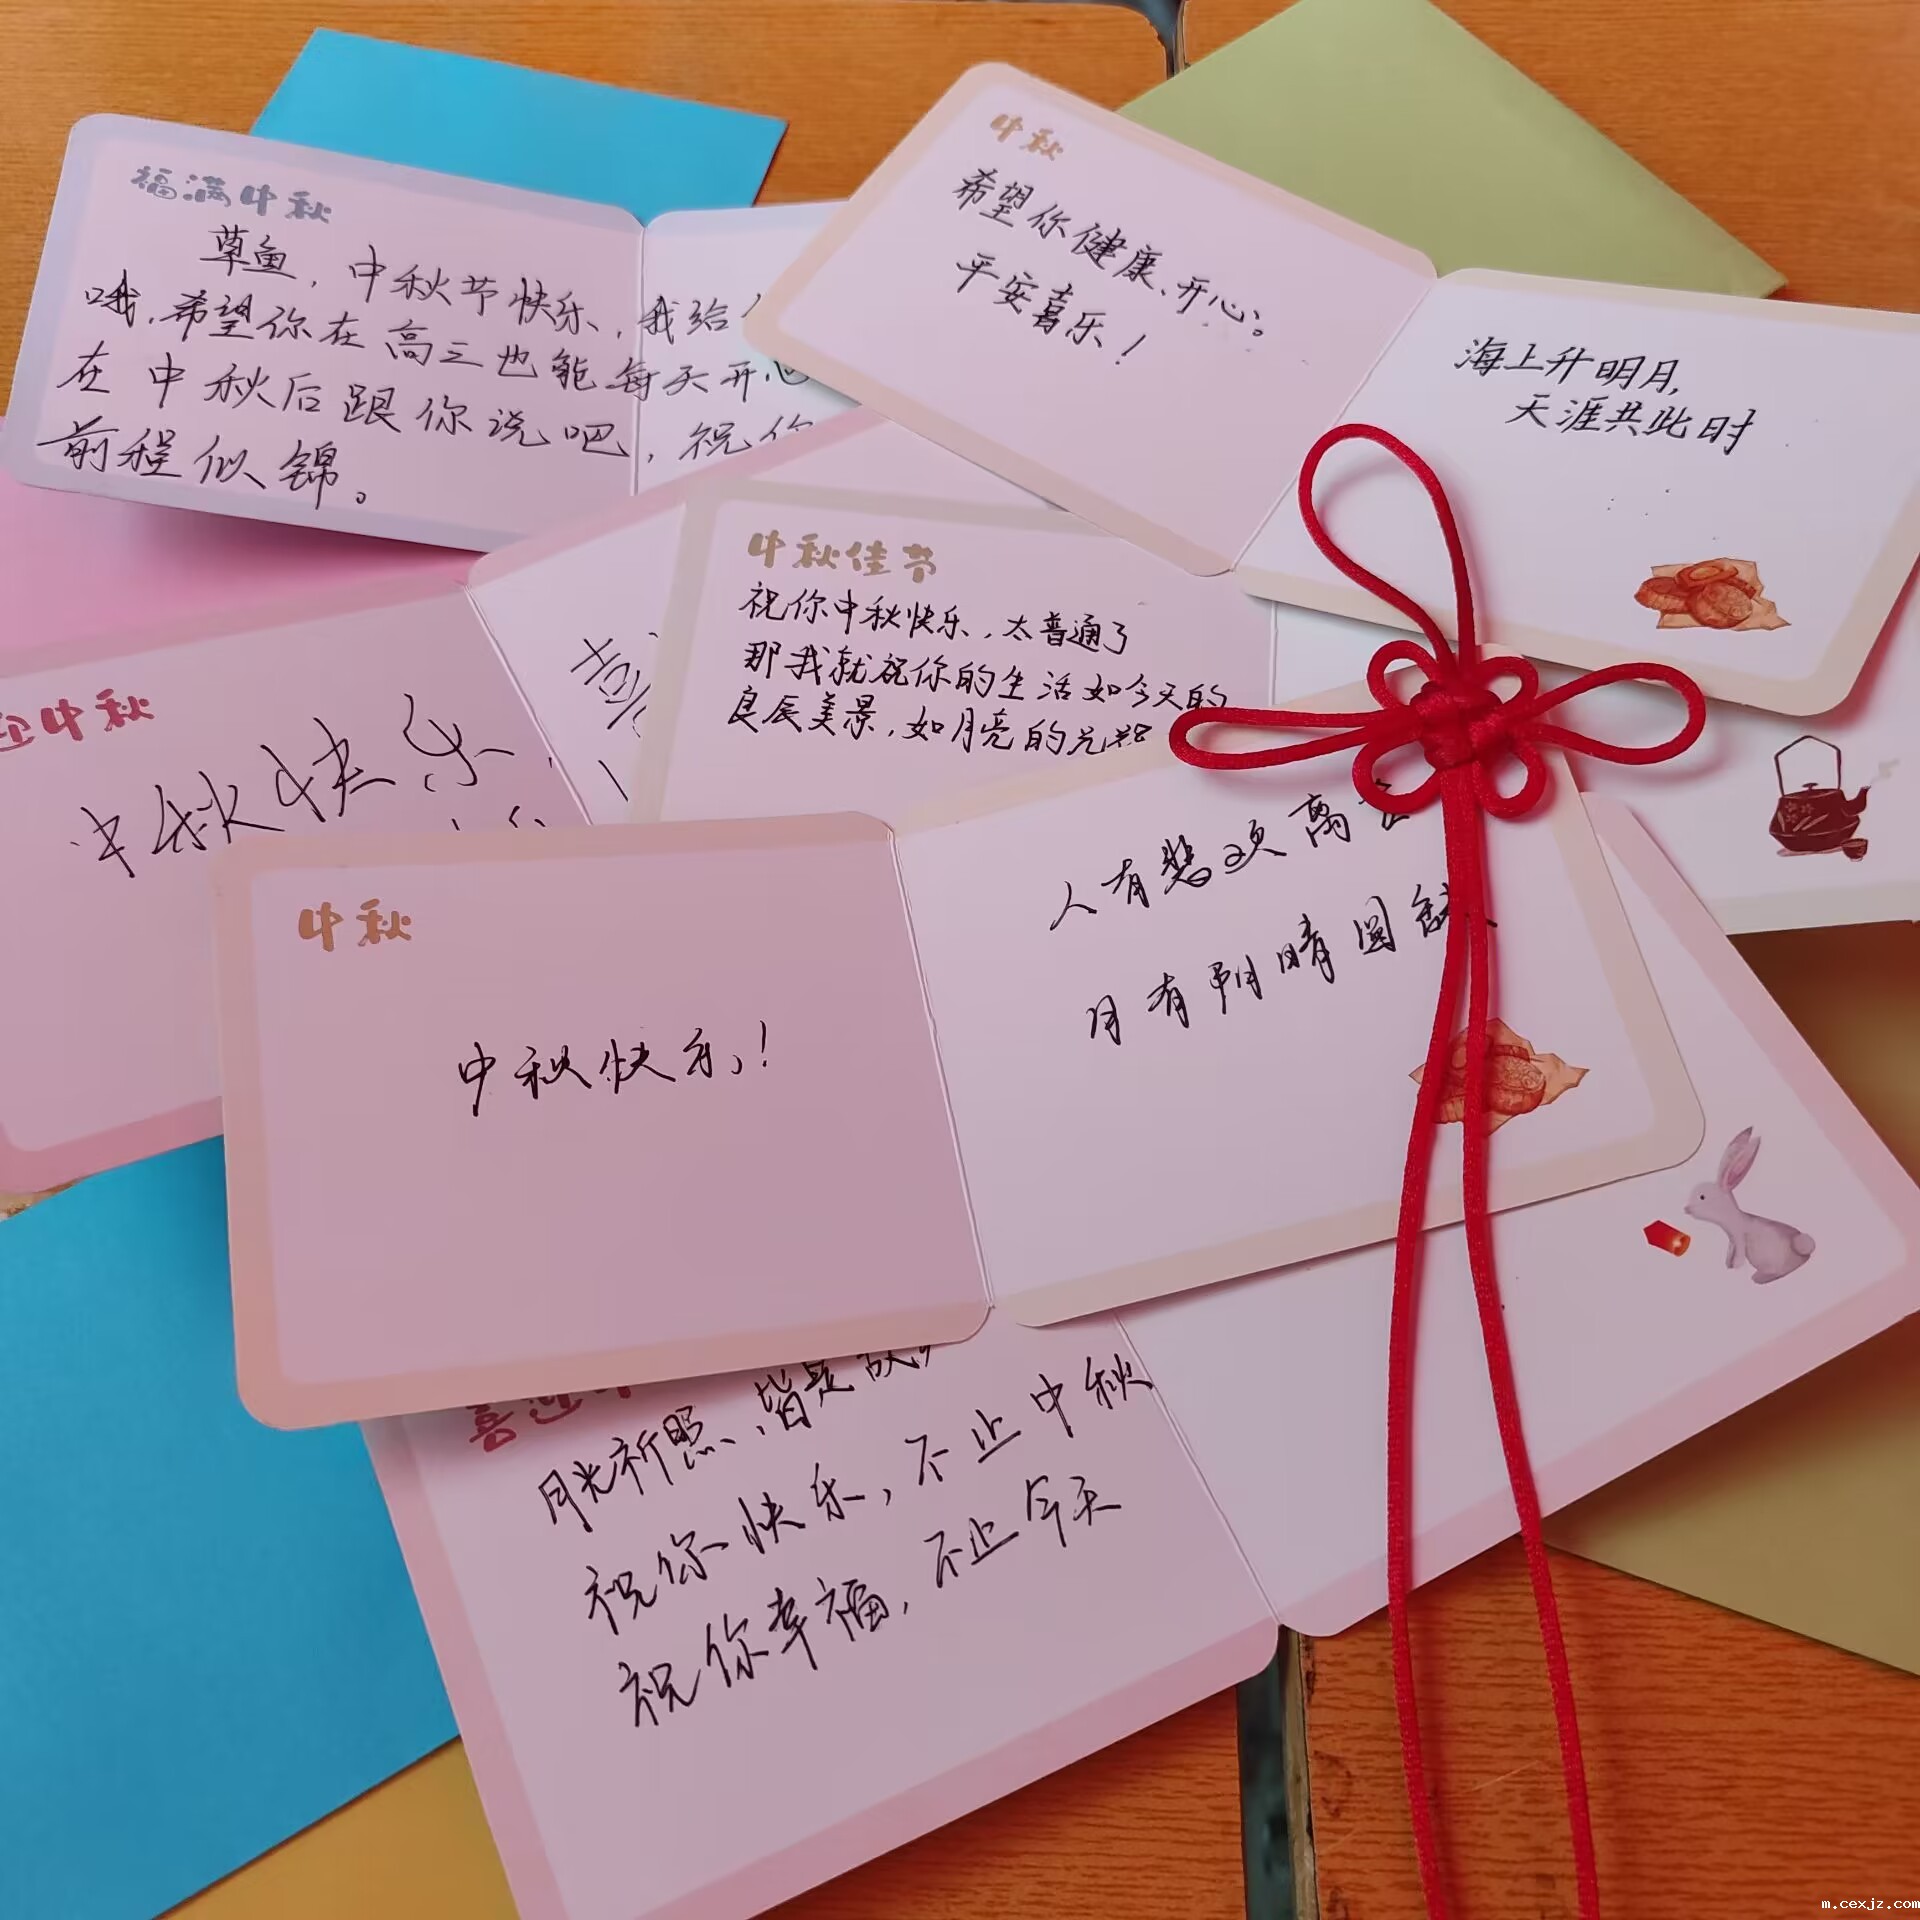 福满中秋
草鱼，中秋节快乐，我给
哦，希望你在高三也能每天开心
在中秋后跟你说吧，祝你
前程似锦。
中秋
希望你健康、开心。
平安喜乐！
海上升明月，
天涯共此时
迎中秋
中秋快乐，
喜
中秋佳节
祝你中秋快乐，太普通了
那我就祝你的生活如今天的
良辰美景，如月亮的光
中秋
中秋快乐！
人有悲欢离合
月有阴晴圆缺
喜迎中
月光所照、皆是故
祝你快乐，不止中秋
祝你幸福，不止今天
m.cexjz.com